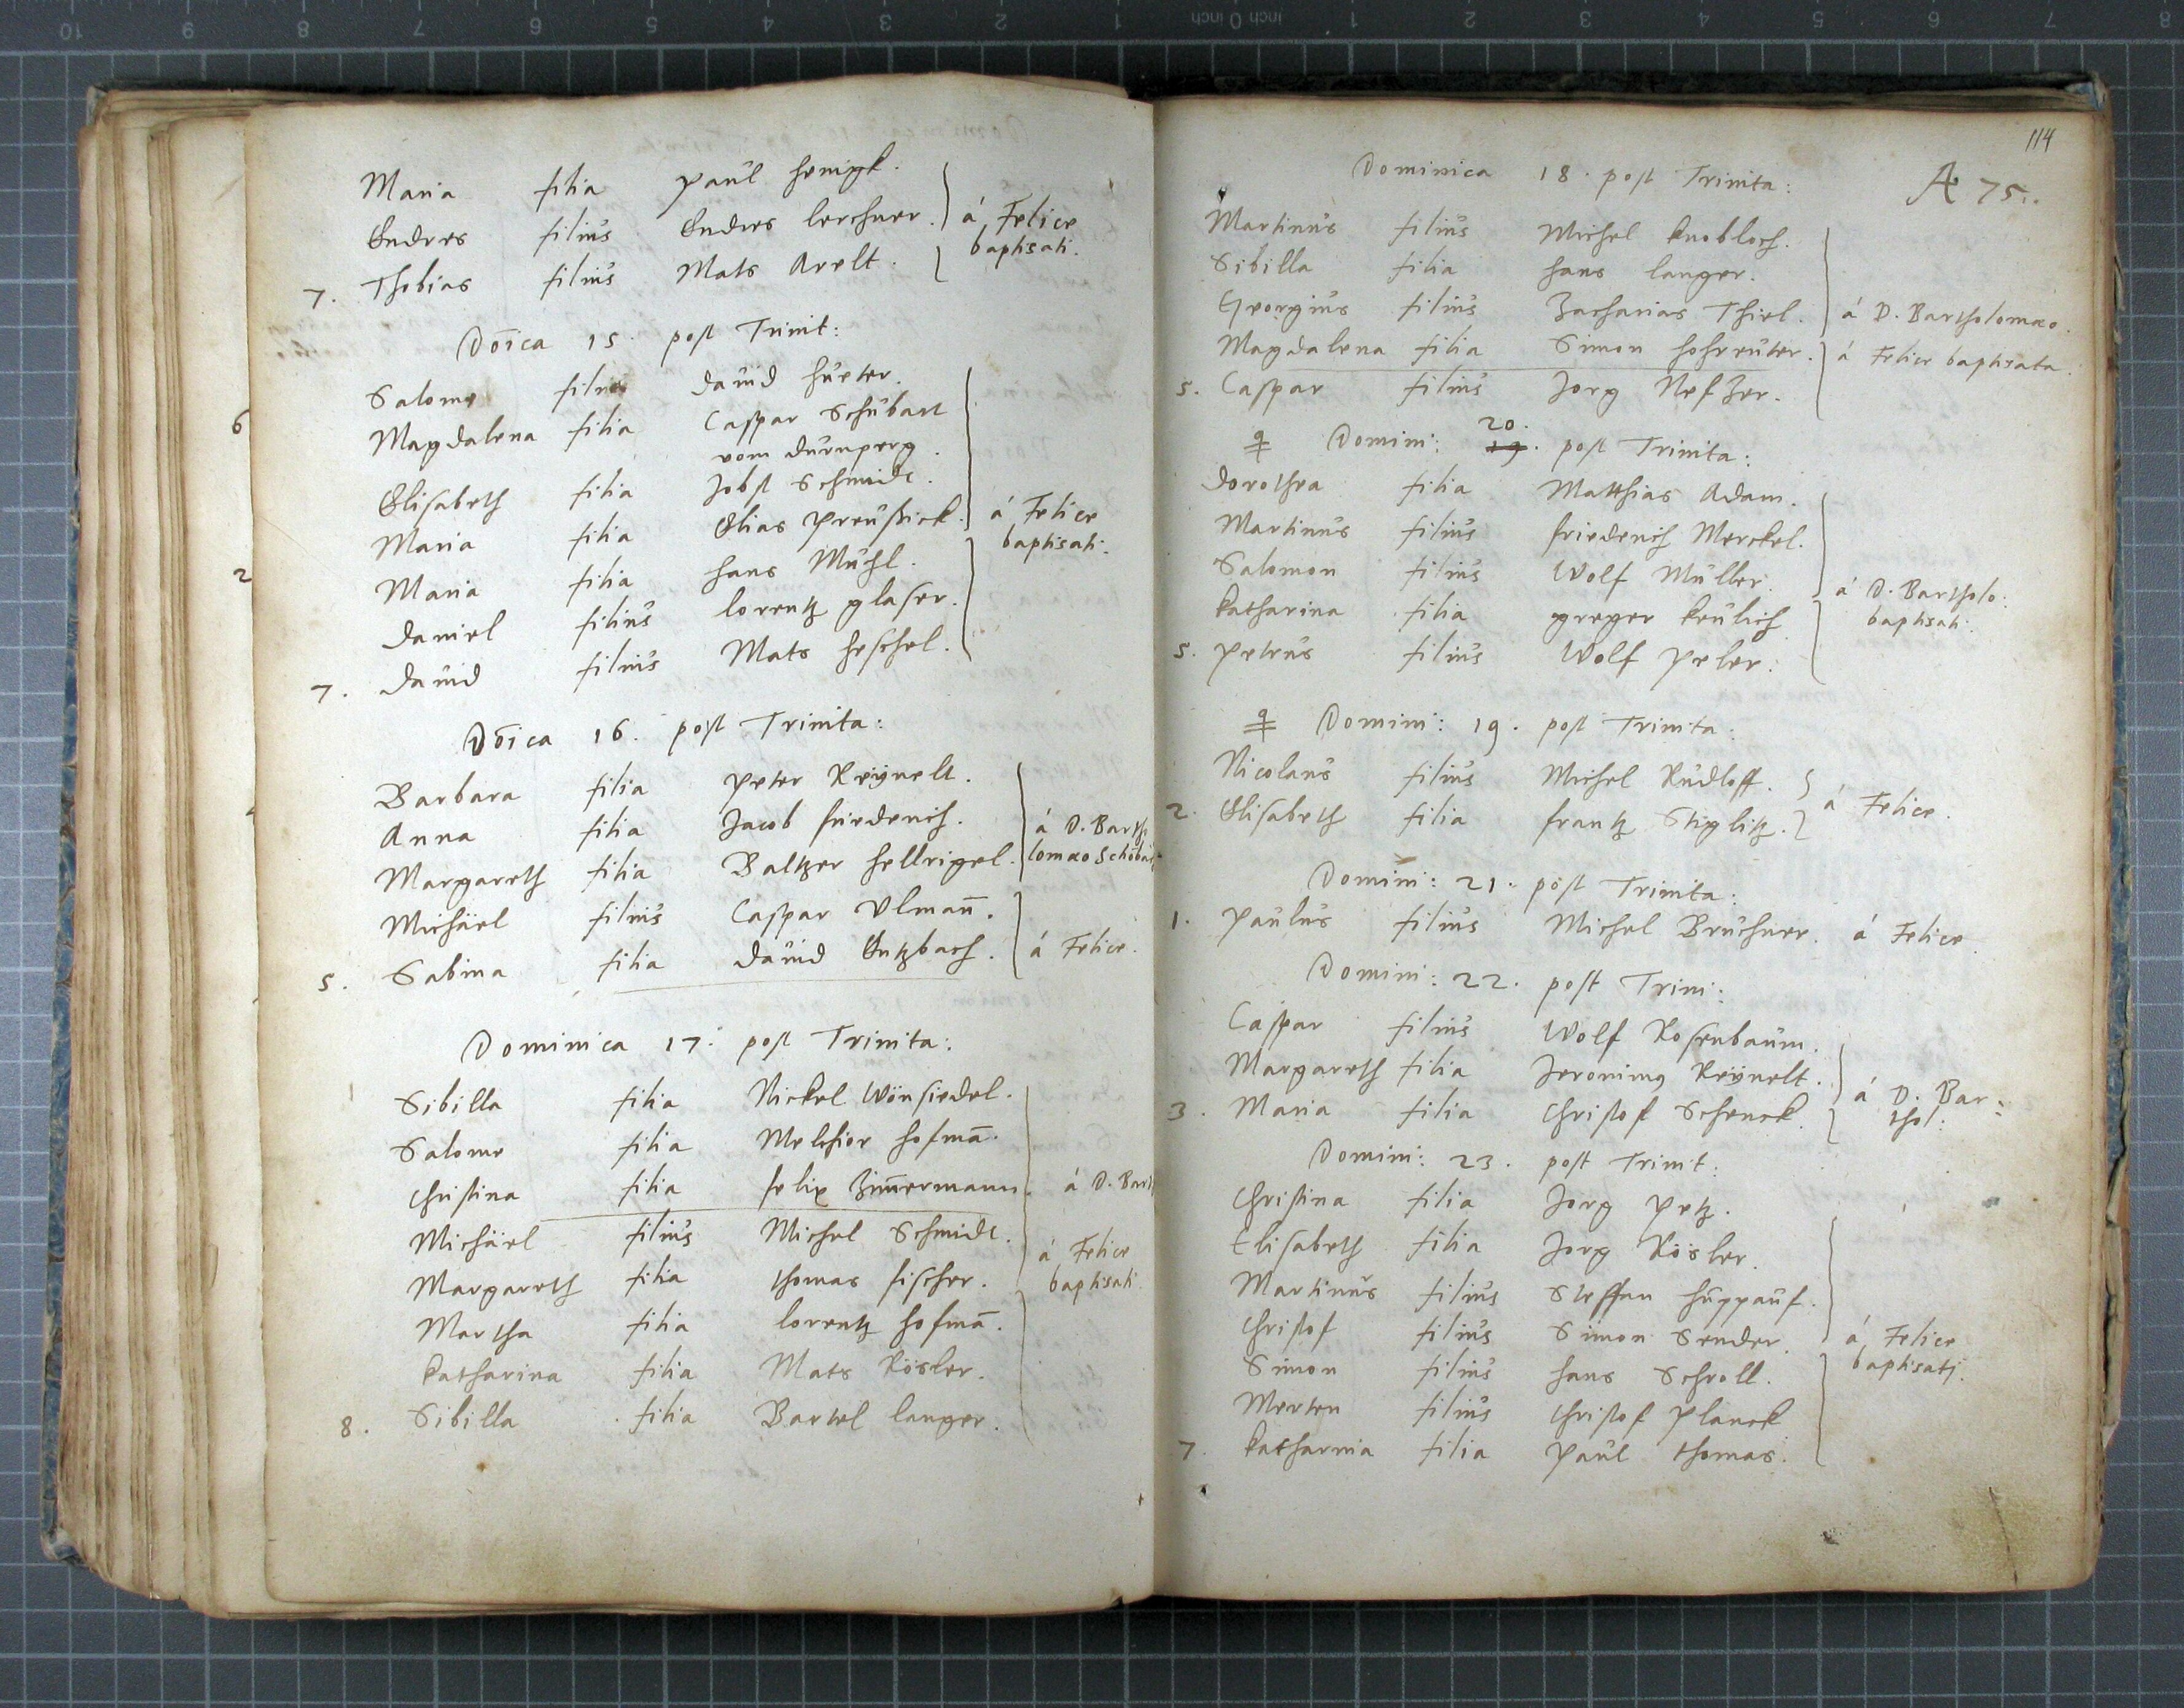 Maria filia Paul Henigk.
Endres filius Endres Lerchner. á Felice
Thobias filius Mats Arelt. baptisati.
7.
Do͞ica 15. post Trinit:
Salome filia David Hueter.
6
Magdalena filia Caspar Schubart
vom Durnperg.
Elisabeth filia Jobst Schmidt.
Maria filia Elias Preussick. á Felice
2
Maria filia Hans Mühl. baptisati.
Daniel filius Lorentz Glaser.
7. David filius Mats Heschel.
Do͞ica 16. post Trinita:
Barbara filia Peter Reÿnelt.
Anna filia Jacob Friederich. á D. Bartho
Margareth filia Baltzer Hellrigel. lomæo
Michäel filius Caspar Ulman̄.
5. Sabina filia David Entzbach. á Felice.
Dominica 17. post Trinita:
Sibilla filia Nickel Wönsiedel.
Salome filia Melchior Hofma͞.
Christina filia Felix Zim̄ermann. á D. Bart
Michäel filius Michel Schmidt.
Margareth filia Thomas Fischer. á Felice
baptisati.
Martha filia Lorentz Hofma͞.
Katharina filia Mats Rösler.
8. Sibilla filia Bartel Langer.
114
Dominica 18. post Trinita:
A 75..
Martinus filius Michel Knobloch.
Sibilla filia Hans Langer.
Georgius filius Zacharias Thiel. á D. Bartholomæo.
Magdalena filia Simon Hohreuter. á Felice baptisata.
5. Caspar filius Jorg Nefzer.
20.
Domini: 19. post Trinita:
Dorothea filia Matthias Adam.
Martinus filius Friederich Merckel.
Salomon filius Wolf Müller. á D. Bartholo:
Katharina filia Greger Keulich baptisati.
5. Petrus filius Wolf Peler.
Domini: 19. post Trinita:
Nicolaus filius Michel Rudloff.
2. Elisabeth filia Frantz Stiglitz. á Felice.
Domini: 21. post Trinita:
1. Paulus filius Michel Bruchner. á Felice.
Domini: 22. post Trini:
Caspar filius Wolf Rosenbaum.
Margareth filia Jeronimus Reÿnelt.
3. Maria filia Christof Schenck. á D. Bar:
thol:
Domini: 23. post Trinit:
Christina filia Jorg Petz.
Elisabeth filia Jorg Rösler.
Martinus filius Steffan Huppauf.
Christof filius Simon Sender. á Felice
Simon filius Hans Schroll. baptisati.
Merten filius Christof Planck
7. Katharina filia Paul Thomas.